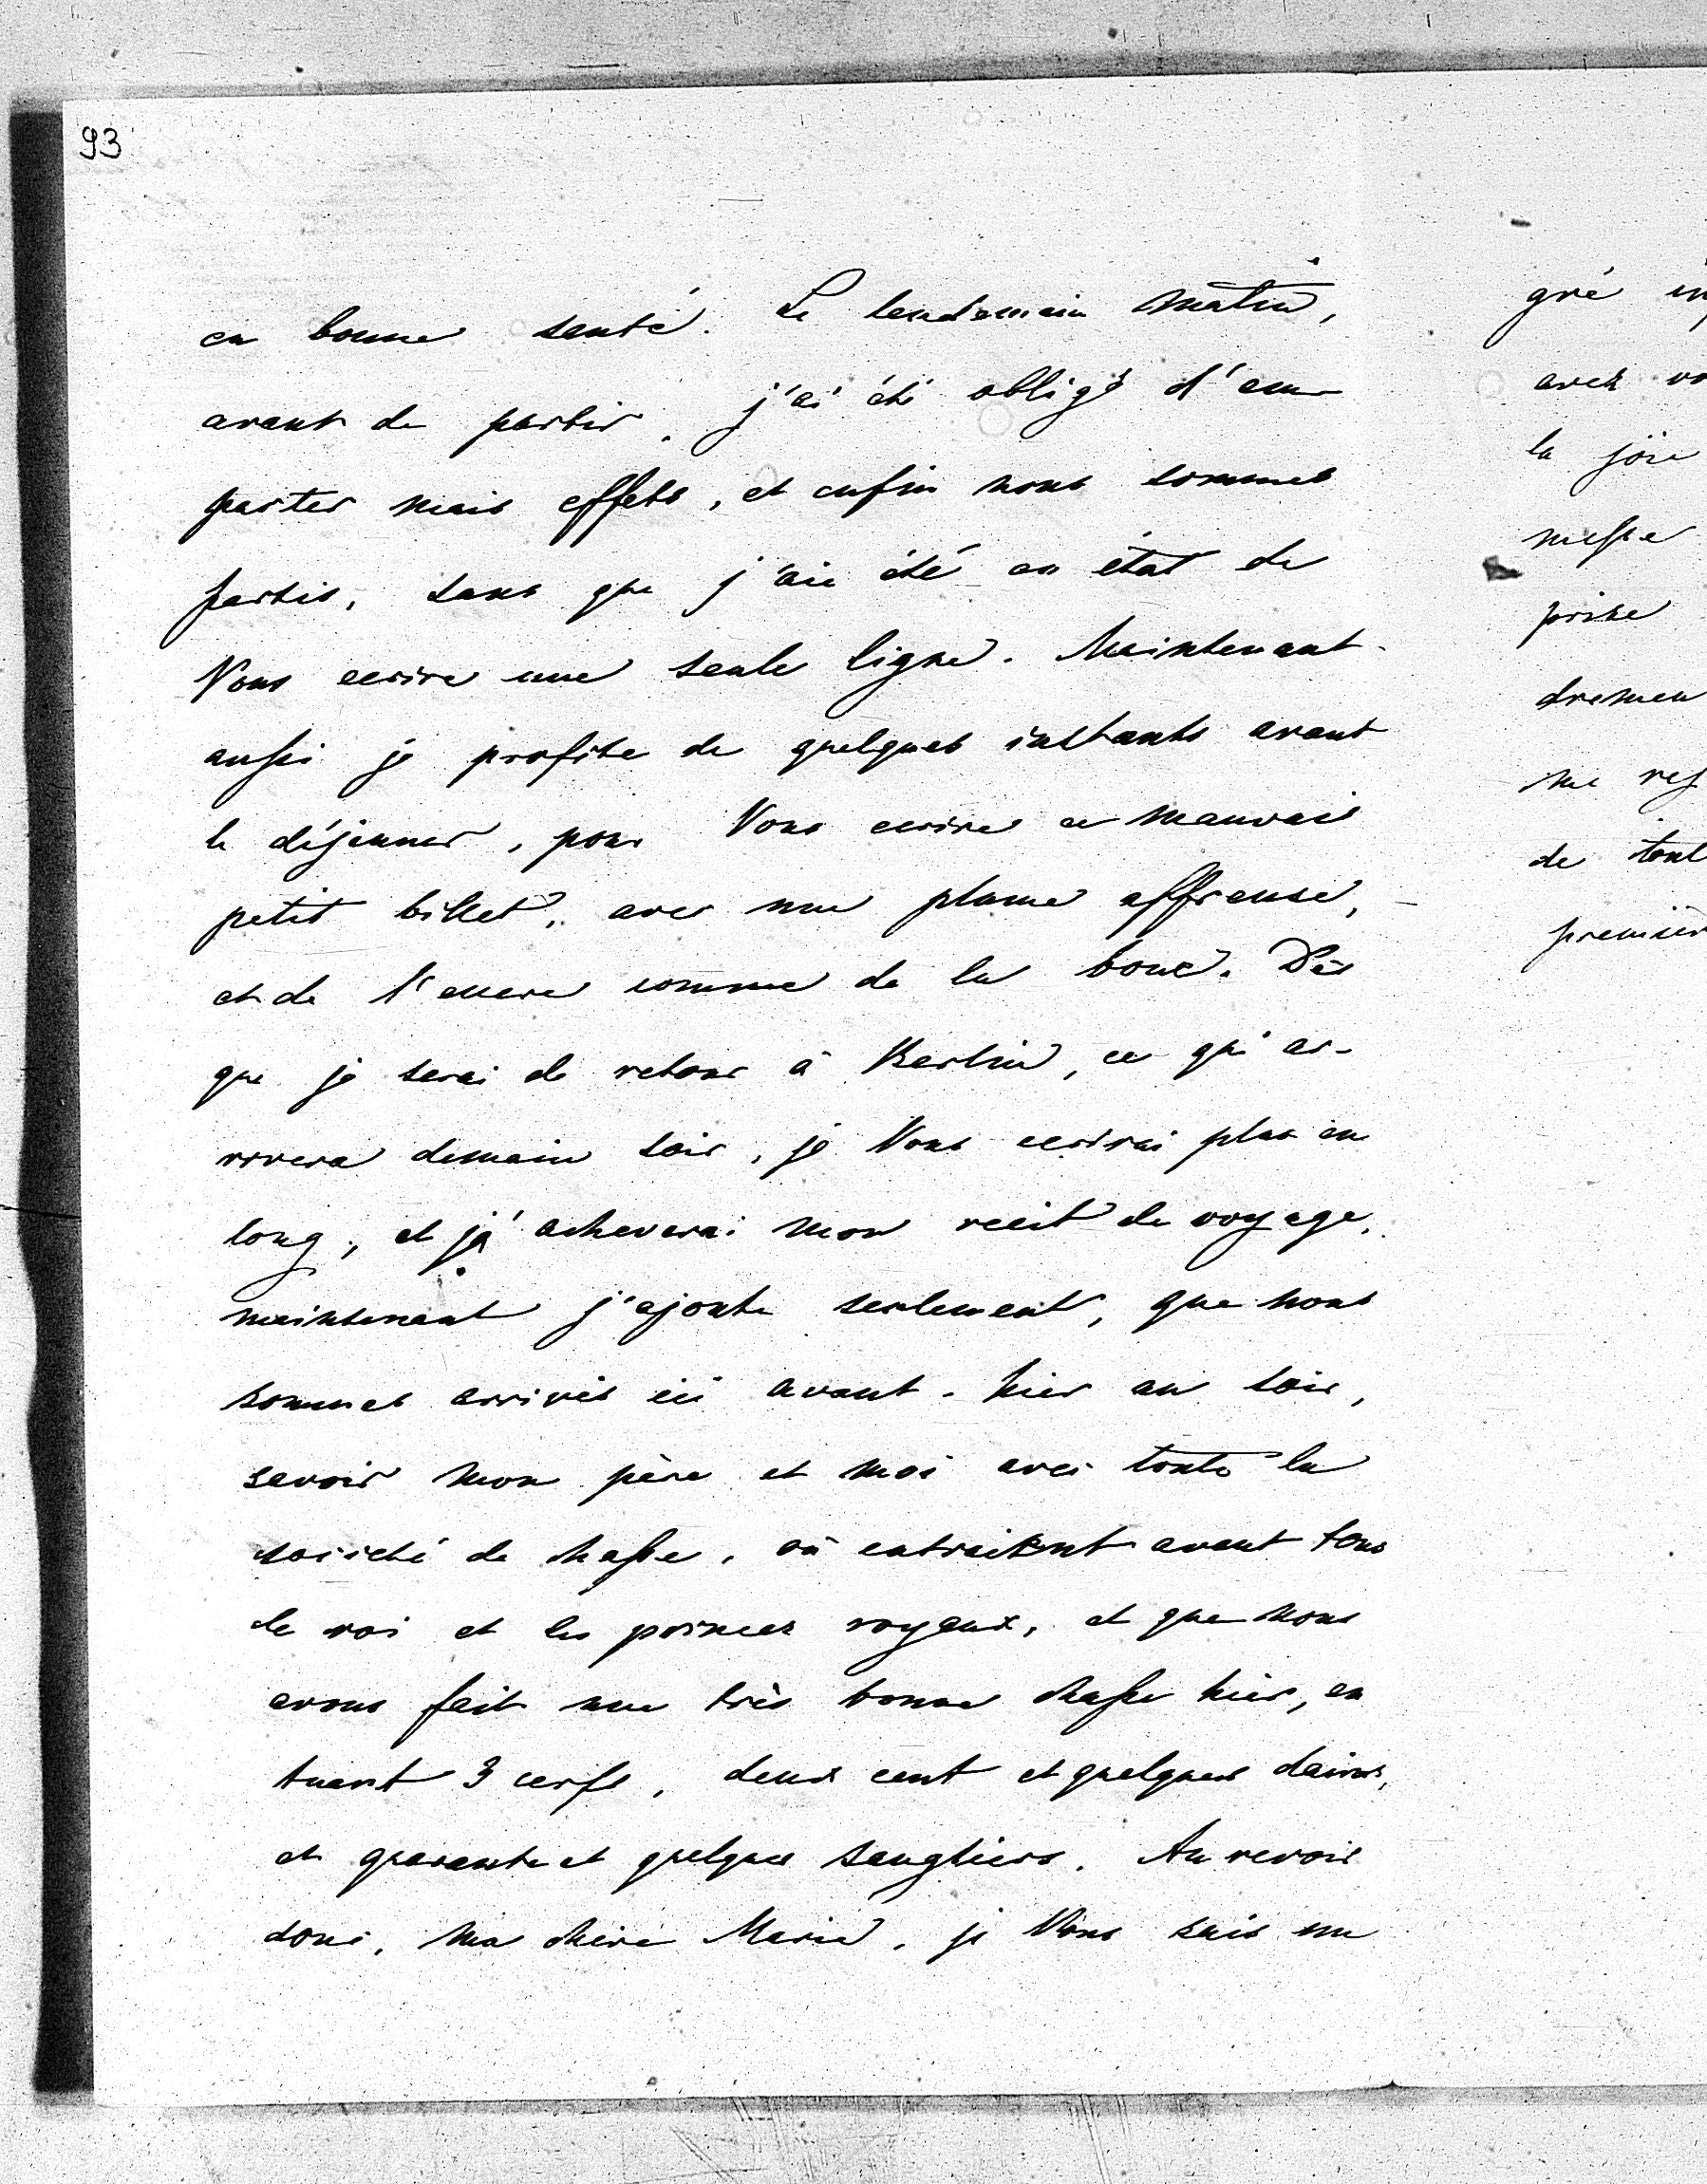 93
en bonne santé. Le lendemain matin,
avant de partir, j'ai été obligé d'em-
parter mais effets, et enfin nous sommes
partis, sans que j'aie été en état de
Vous ecrire une seule ligne. Maintenant
aussi je profite de quelques instants avant
le déjeuner, pour Vous ecrire ce mauvais
petit billet, avec une plume affreuse,
et de l'encre comme de la boue. Dès
que je serai de retour à Berlin, ce qui ar-
rivera demain soir, je Vous ecrirai plus en
long, et j'acheverai mon recit de voyage.
maintenant j'ajoute seulement, que nous
sommes arrivés ici avant-hier au soir,
savoir mon père et moi avec toute la
société de chasse, où entraient avant tous
le roi et les princes royaux, et que nous
avons fait une très bonne chasse hier, en
tuant 3 cerfs, deux cent et quelques daims,
et quarante et quelques sangliers. Au revoir
donc, ma chère Marie, je Vous sais un
gré
avez
la joie
messe
prise
dremen
me
de tout
premièr